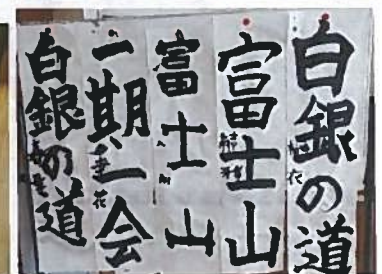 白銀の道
富士山
富士山
一期一会
白銀の道